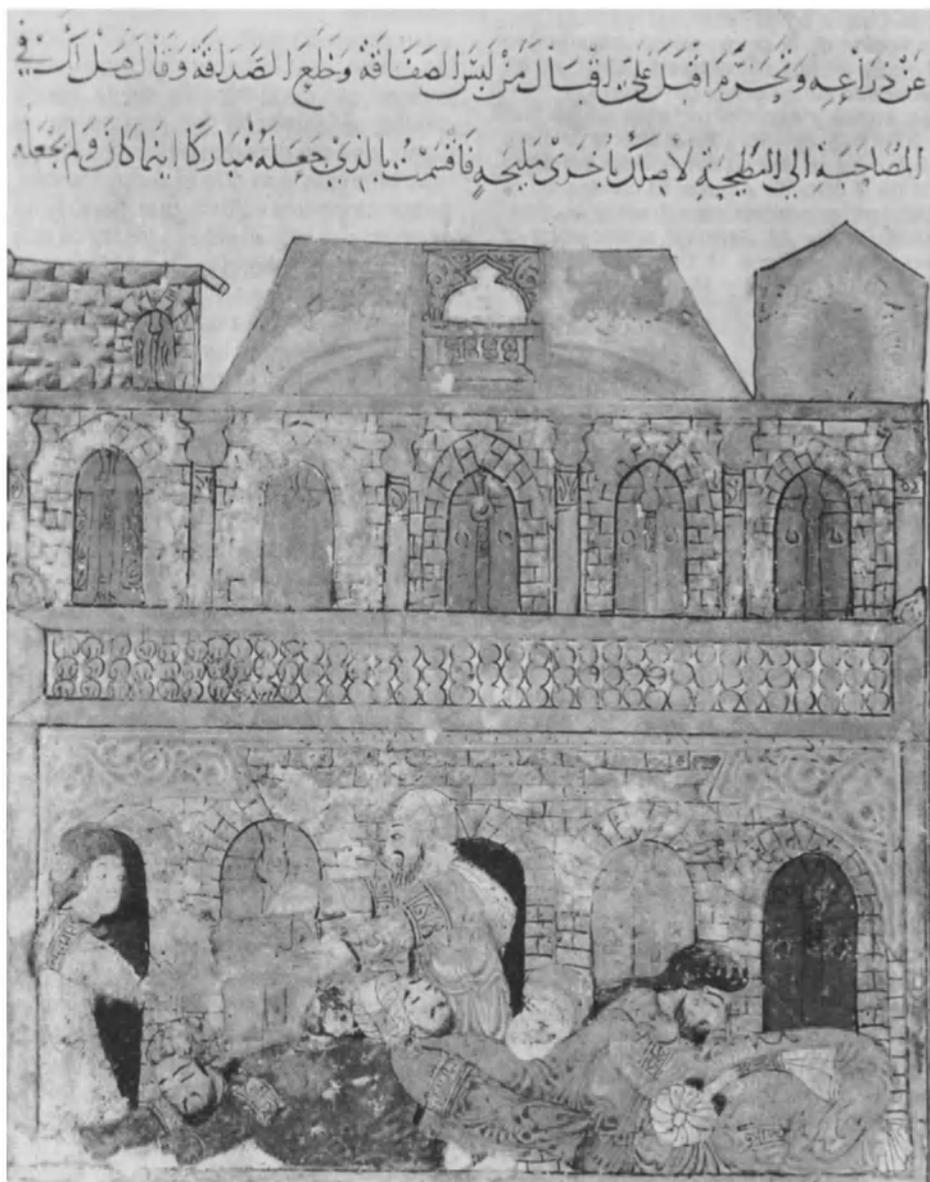 عَنْ ذِرَاعِهِ وَتَحَزَّمَ اقْبَلَ عَلَيَّ اقْبَالَ مَنْ لَبِسَ الصَفَاقَةَ وَخَلَعَ الصَّدَاقَةَ وَقَالَ هَلْ لَكَ فِي
المُصَاحَبَةِ الي البَطِيحَةِ لاَصِلَكَ بِاُخْرَى مَلِيحَةٍ فَاقْسَمْتُ بِالَّذِي جَعَلَهُ مُبَارَكًا اينَمَا كَانَ وَلَمْ يَجْعَلْهُ